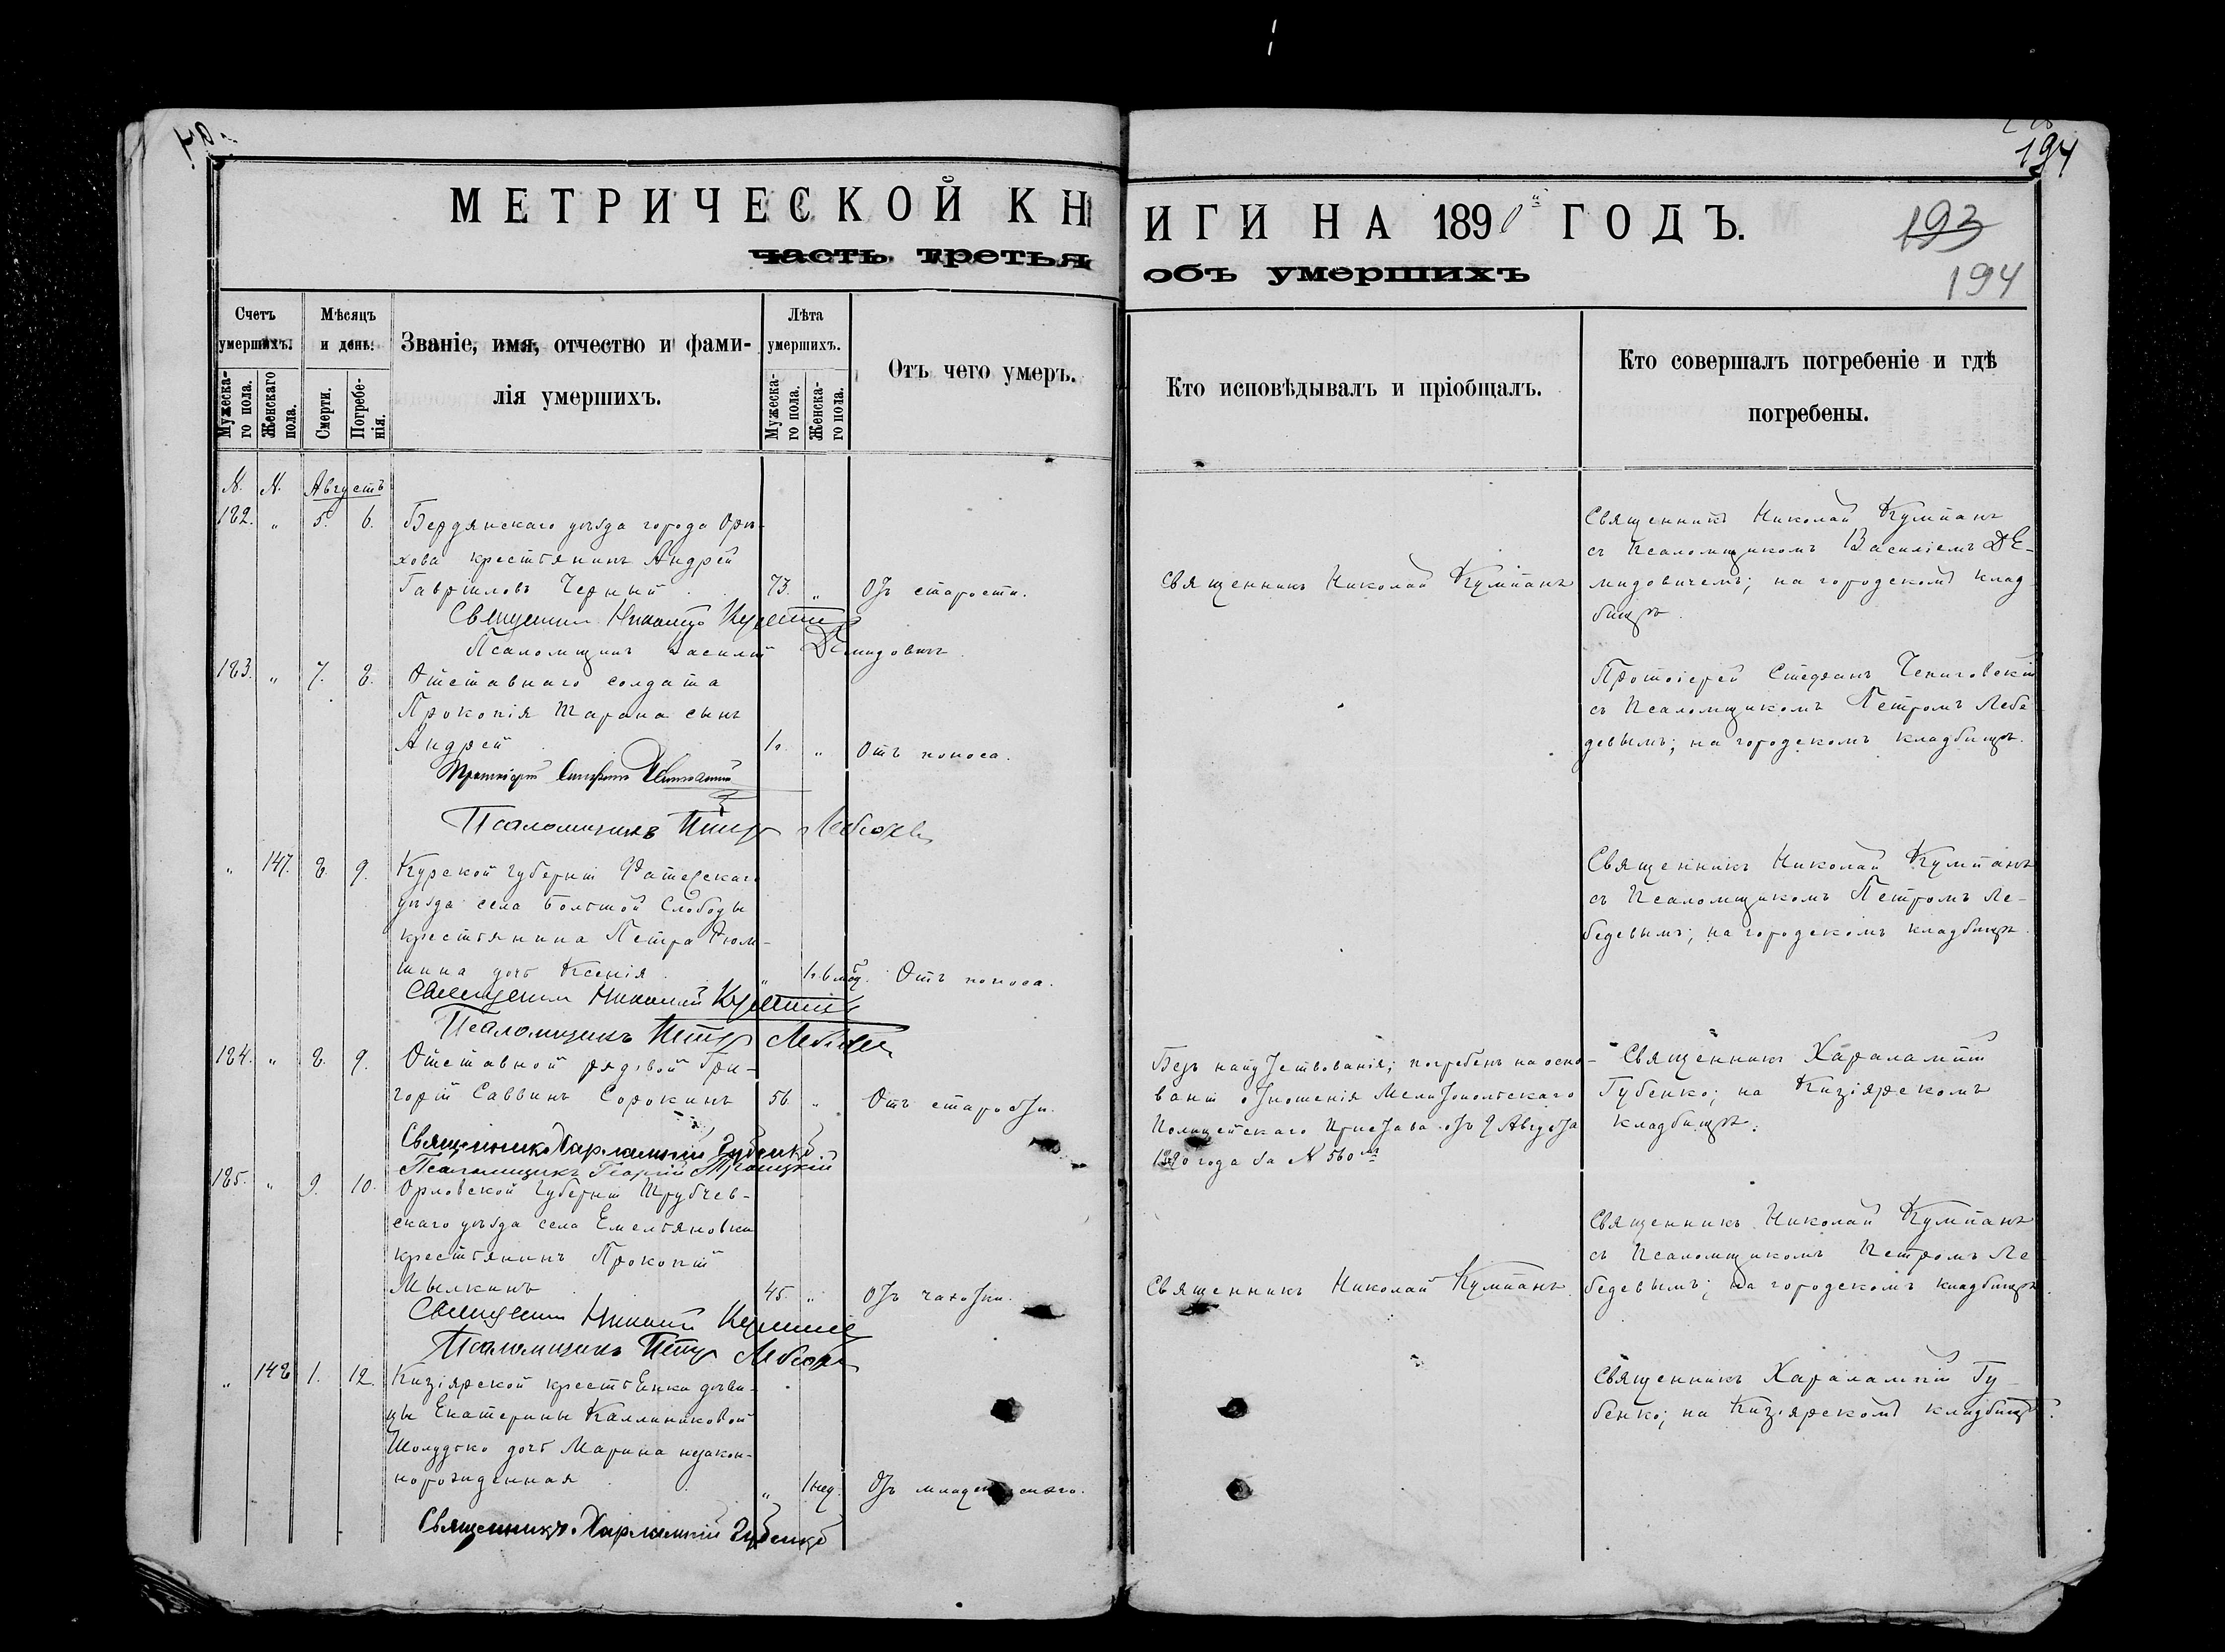 194
МЕТРИЧЕСКОЙ КН
ИГИ НА 1890й ГОДЪ.
193
194
часть третья
объ умершихъ
Счетъ умершихъ:
Мѣсяцъ и день:
Званіе, имя, отчество и фами-
лія умершихъ.
Лѣта умершихъ.
Отъ чего умеръ.
Кто исповѣдывалъ и пріобщалъ.
Кто совершалъ погребеніе и гдѣ
погребены.
Мужеска-
го пола.
Женскаго
пола.
Смерти.
Погребе-
нія.
Мужеска-
го пола.
Женска-
го пола.
N. N. Августъ
182. „ 5. 6. Бердянскаго уѣзда города Орѣ-
хова крестьянинъ Андрей
Гавриловъ Черный. 73. „ Отъ старости.
Священникъ Николай Кумпанъ
Священникъ Николай Кумпанъ
съ Псаломщикомъ Василіемъ Де-
мидовичемъ; на городскомъ клад-
бищѣ.
Священникъ Николай Кумпанъ
Псаломщикъ Василій Демидовичъ
183. „ 7. 8. Отставнаго солдата
Прокопія Тарана сынъ
Андрей 1 г. „ Отъ поноса.
Протоіерей Стефанъ
съ Псаломщикомъ Петромъ Лебе
девымъ; на городскомъ кладбищѣ.
Протоіерей Стефанъ
Псаломщикъ Петръ Лебедевъ
„ 147. 8. 9. Курской губерніи Фатежскаго
уѣзда села Большой Слободы
крестьянина Петра Тюм-
шина дочь Ксенія „ Отъ поноса.
Священникъ Николай Кумпанъ
съ Псаломщикомъ Петромъ Ле-
бедевымъ; на городскомъ кладбищѣ.
Священникъ Николай Кумпанъ
Псаломщикъ Петръ Лебедевъ
184. „ 8. 9. Отставной рядовой Гри-
горій Саввинъ Сорокинъ 56 „ Отъ старости.
Безъ напутствованія; погребенъ на осно-
ваніи отношенія Мелитопольскаго
Полицейскаго Пристава отъ 9 Августа
1890 года за N 560м
Священникъ Харалампій
Губенко; на Кизіярскомъ
кладбищѣ.
Священникъ Харлампій Губенко
Псаломщикъ Георгій Троицкій
185. „ 9. 10. Орловской губерніи Трубчев-
скаго уѣзда села Емельяновки
крестьянинъ Прокопій
Мылкинъ 45. „ Отъ чахотки.
Священникъ Николай Кумпанъ.
Священникъ Николай Кумпанъ
съ Псаломщикомъ Петромъ Ле
бедевымъ; на городскомъ кладбищѣ.
Священникъ Николай Кумпанъ
Псаломщикъ Петръ Лебедевъ
„ 148 1. 12. Кизіярской крестьянки дѣви-
цы Екатерины Каллиниковой
Шолудько дочь Марина незакон-
норожденная „ 1 нед. Отъ младенческаго.
Священникъ Харалампій Гу-
бенко; на Кизіярскомъ кладбищѣ.
Священникъ Харлампій Губенко